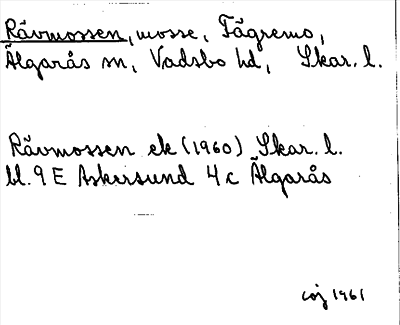 Rävmossen, mosse, Fägremo,
Älgarås sn, Vadsbo hd, Skar. l.
Rävmossen ek (1960) Skar. l.
bl. 9 E Askersund 4 c Älgarås
1961